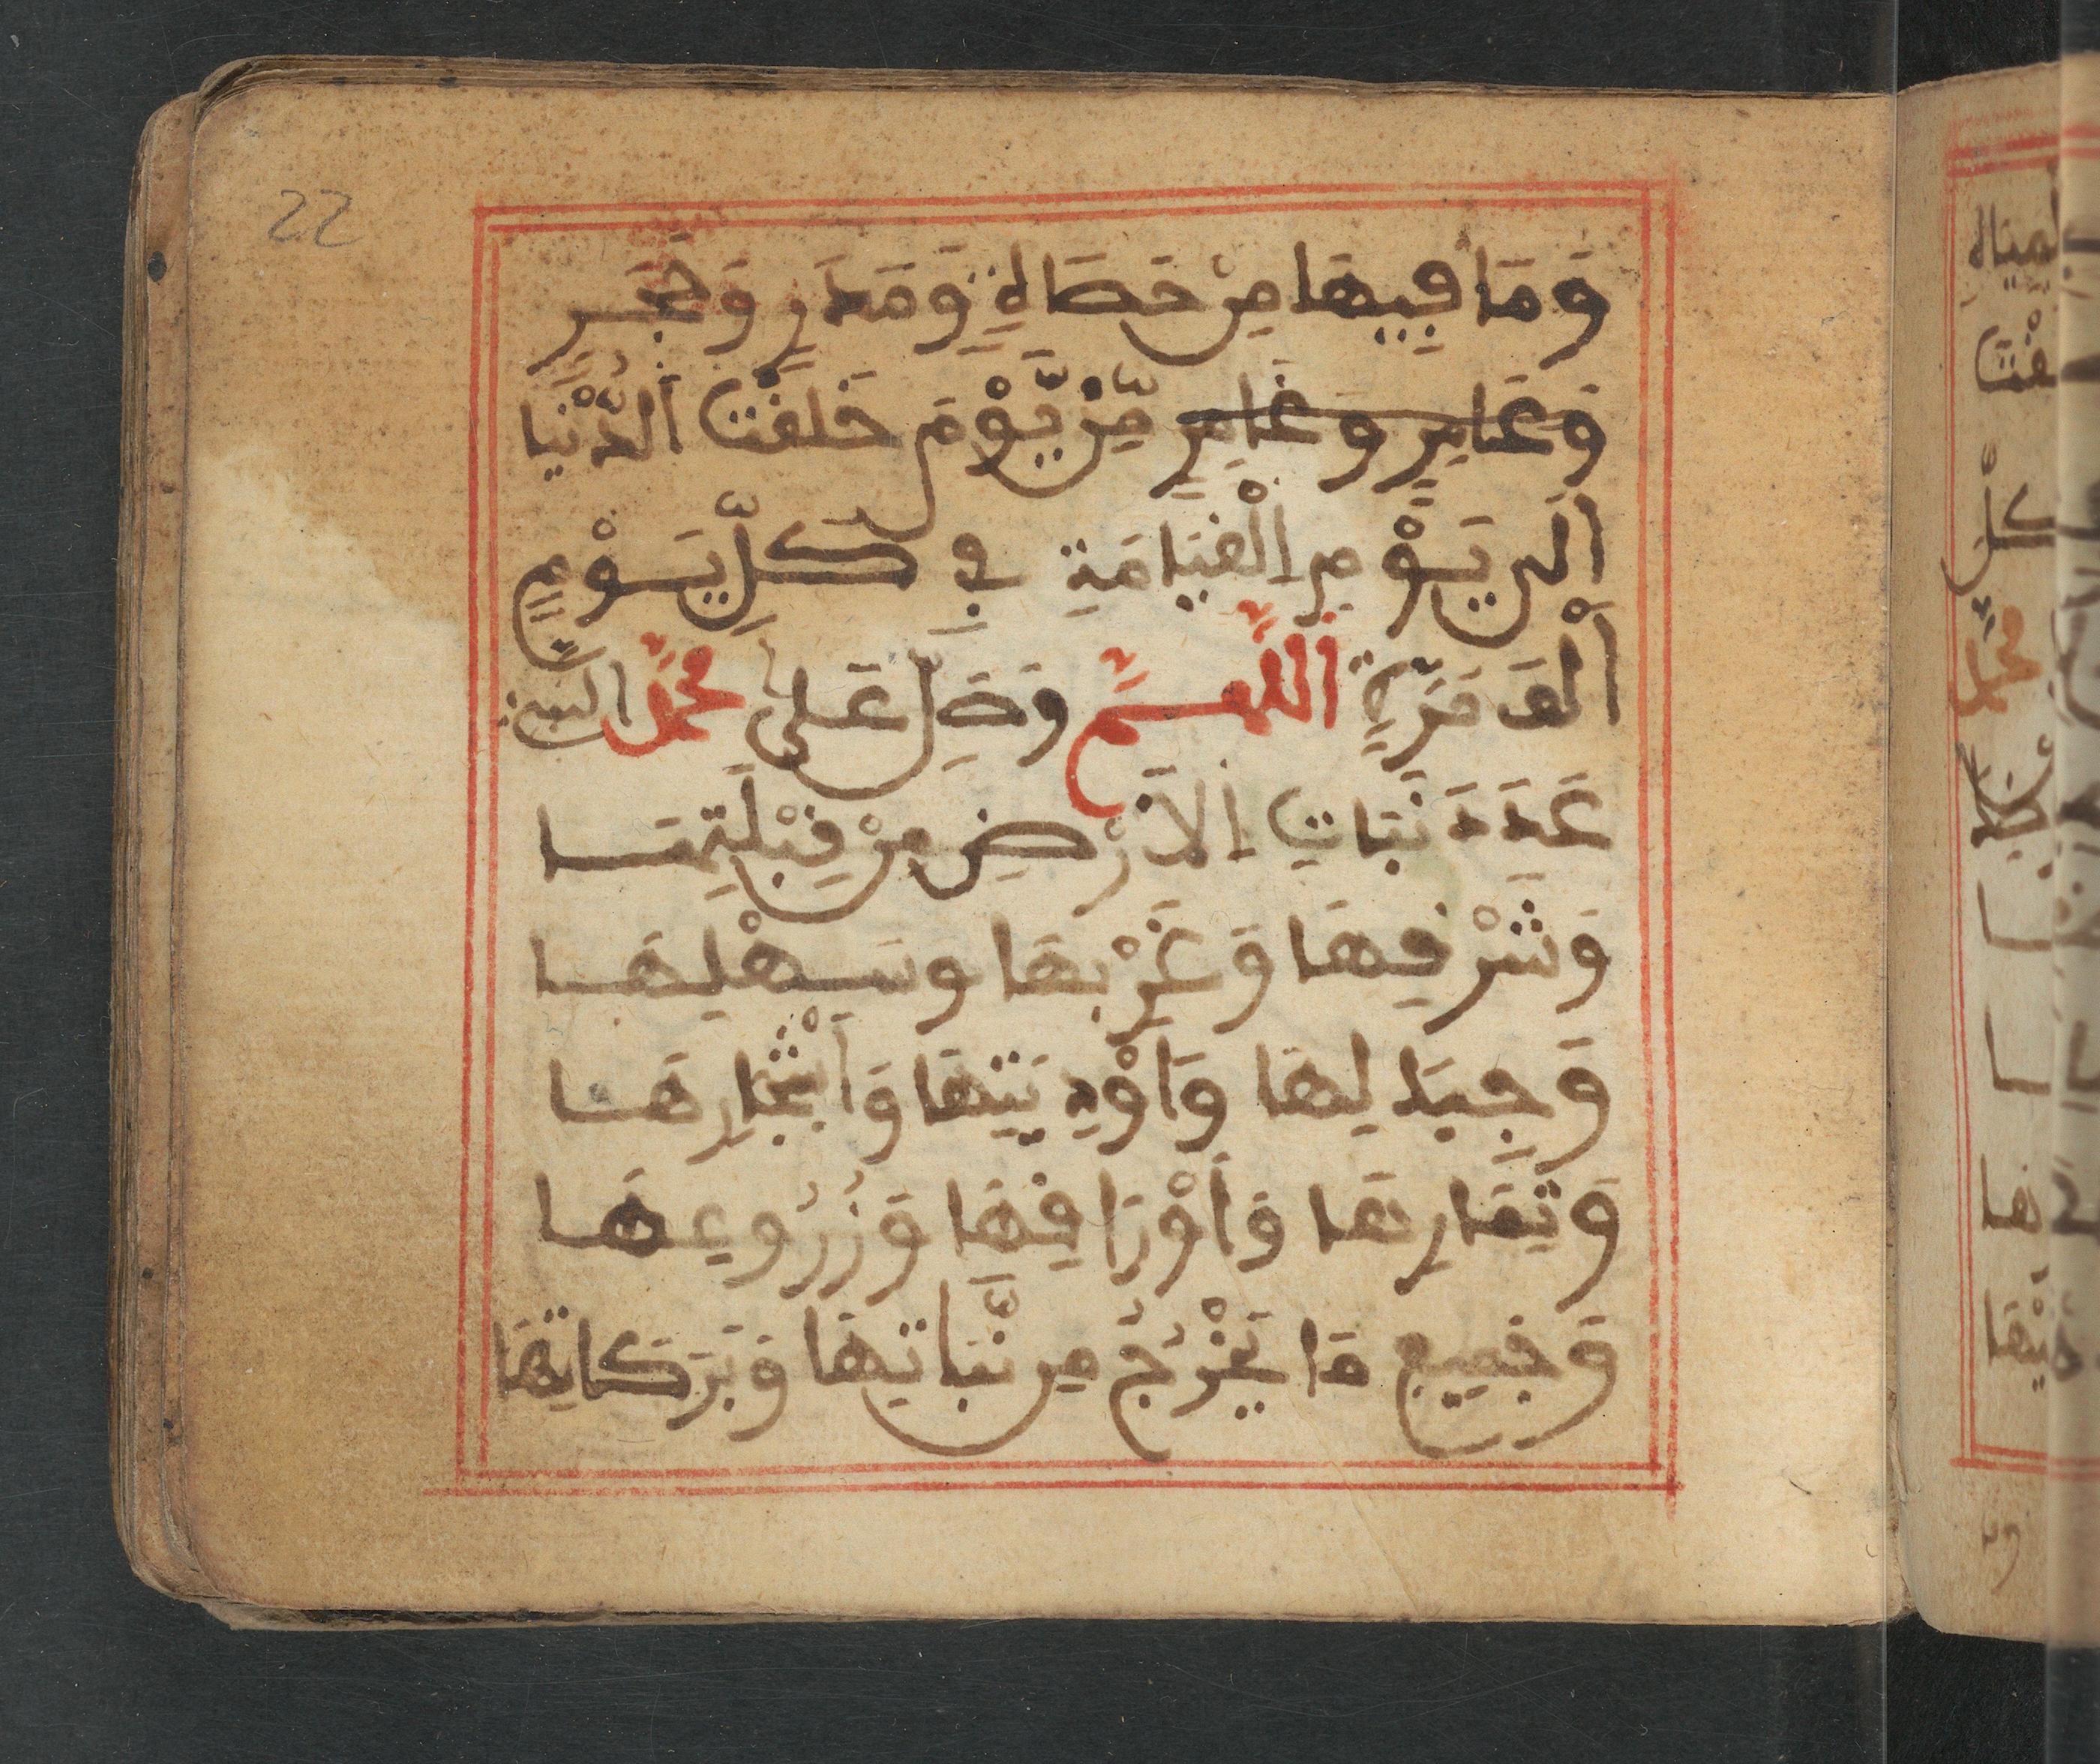 22
وَمَا فِيهَا مِنْ حَصَاةٍ وَمَدَرٍ وَحَجَرٍ
وَعَامِرٍ وَغَامِرٍ مِّنْ يَّوْمَ خَلَقْتَ اَلدُّنْيَا
اَلىٰ يَوْمِ اِلْقِيَامَةِ فِي كُلِّ يَوْمٍ
اَلْفَ مَرَّةٍ اَللَّهُمَّ وَصَلِّ عَلىٰ مُحَمَّدٍ النبي
عَدَدَ نَبَاتِ اِلاَرْضِ مِنْ قِبْلَتِهَا
وَشَرْقِهَا وَغَرْبِهَا وَسَهْلِهَا
وَجِبَالِهَا وَاَوْدِيَتِهَا وَاَشْجَارِهَا
وَثِمَارِهَا وَاَوْرَاقِهَا وَزُرُوعِهَا
وَجَمِيعِ مَا يَخْرُجُ مِن نَّبَاتِهَا وَبَرَكَاتِهَا